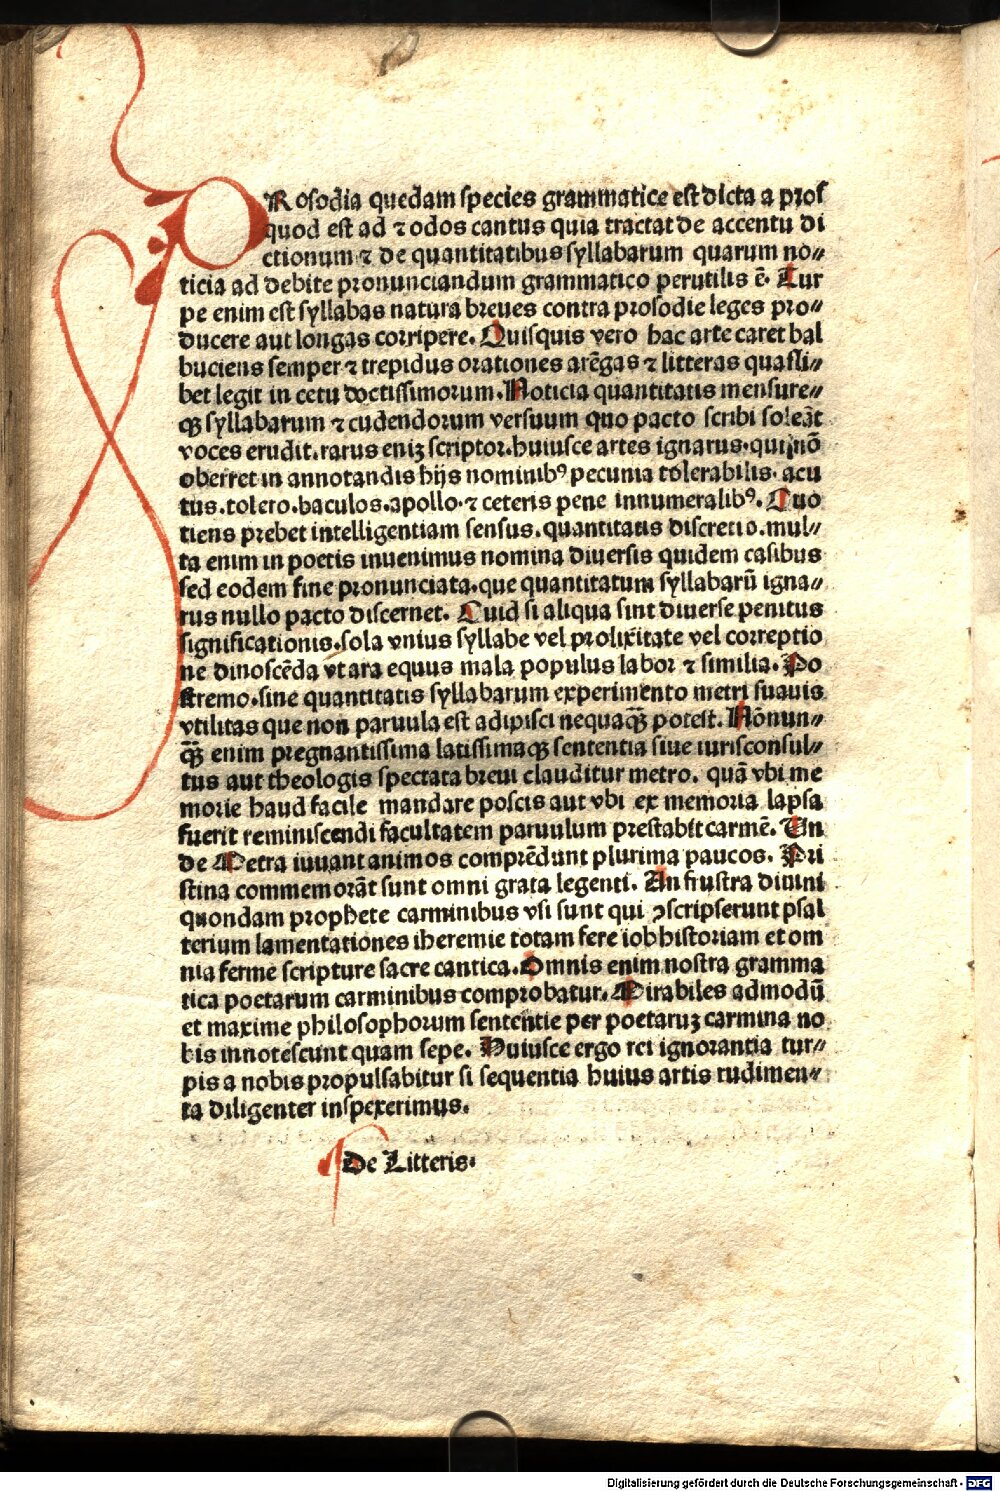 PRosodia quedam species grammatice est dicta a pros
quod est ad ⁊ odos cantus quia tractat de accentu di
ctionum ⁊ de quantitatibus syllabarum quarum no⸗
ticia ad debite pronunciandum grammatico perutilis ē. Tur
pe enim est syllabas natura breues contra prosodie leges pro⸗
ducere aut longas corripere. Quisquis vero hac arte caret bal
buciens semper ⁊ trepidus orationes arēgas ⁊ litteras quasli⸗
bet legit in cetu doctissimorum. Noticia quantitatis mensure⸗
qꝫ syllabarum ⁊ cudendorum versuum quo pacto scribi soleāt
voces erudit. rarus eniꝫ scriptor. huiusce artes ignarus. qui nō
oberret in annotandis hijs nominibꝰ pecunia tolerabilis. acu
tus. tolero. baculos. apollo. ⁊ ceteris pene innumeralibꝰ. Quo
tiens prebet intelligentiam sensus. quantitatis discretio. mul⸗
ta enim in poetis inuenimus nomina diuersis quidem casibus
sed eodem fine pronunciata. que quantitatum syllabarū igna⸗
rus nullo pacto discernet. Quid si aliqua sint diuerse penitus
significationis. sola vnius syllabe vel prolixitate vel correptio
ne dinoscēda vt ara equus mala populus labor ⁊ similia. Po
stremo. sine quantitatis syllabarum experimento metri suauis
vtilitas que non paruula est adipisci nequaqꝫ̄ potest. Nōnun⸗
qꝫ̄ enim pregnantissima latissimaqꝫ sententia siue iurisconsul⸗
tus aut theologis spectata breui clauditur metro. quā vbi me
morie haud facile mandare poscis aut vbi ex memoria lapsa
fuerit reminiscendi facultatem paruulum prestabit carmē. Vn
de Metra iuuant animos comprēdunt plurima paucos. Pri
stina commemorāt sunt omni grata legenti. An frustra diuini
quondam prophete carminibus vsi sunt qui ꝯscripserunt psal
terium lamentationes iheremie totam fere iob historiam et om
nia ferme scripture sacre cantica. Omnis enim nostra gramma
tica poetarum carminibus comprobatur. Mirabiles admodū
et maxime philosophorum sententie per poetaruꝫ carmina no
bis innotescunt quam sepe. Huiusce ergo rei ignorantia tur⸗
pis a nobis propulsabitur si sequentia huius artis rudimen⸗
ta diligenter inspexerimus.
De Litteris.
Digitalisierung gefördert durch die Deutsche Forschungsgemeinschaft - DFG